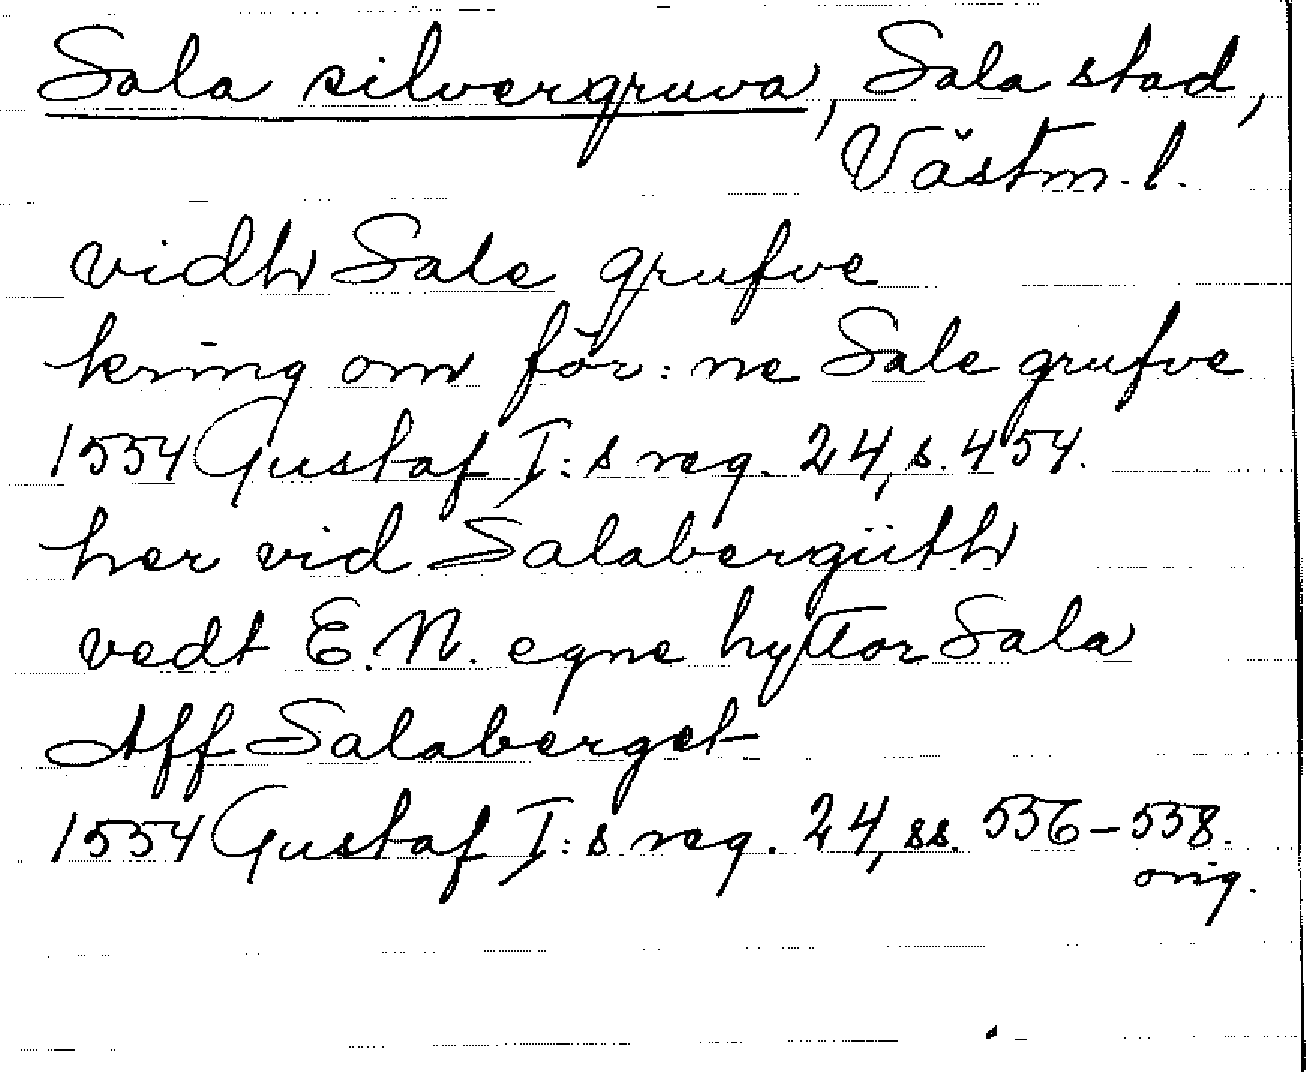 Sala silvergruva, Sala stad,
Västm. l.
vidh Sale grufve
kring om för:ne Sale grufve
1554 Gustaf I:s reg. 24, s. 454.
her vid Salabergüth
vedt E.N. egne hyttor Sala
Aff Salaberget
1554 Gustaf I:s reg. 24, ss. 536-538.
orig.